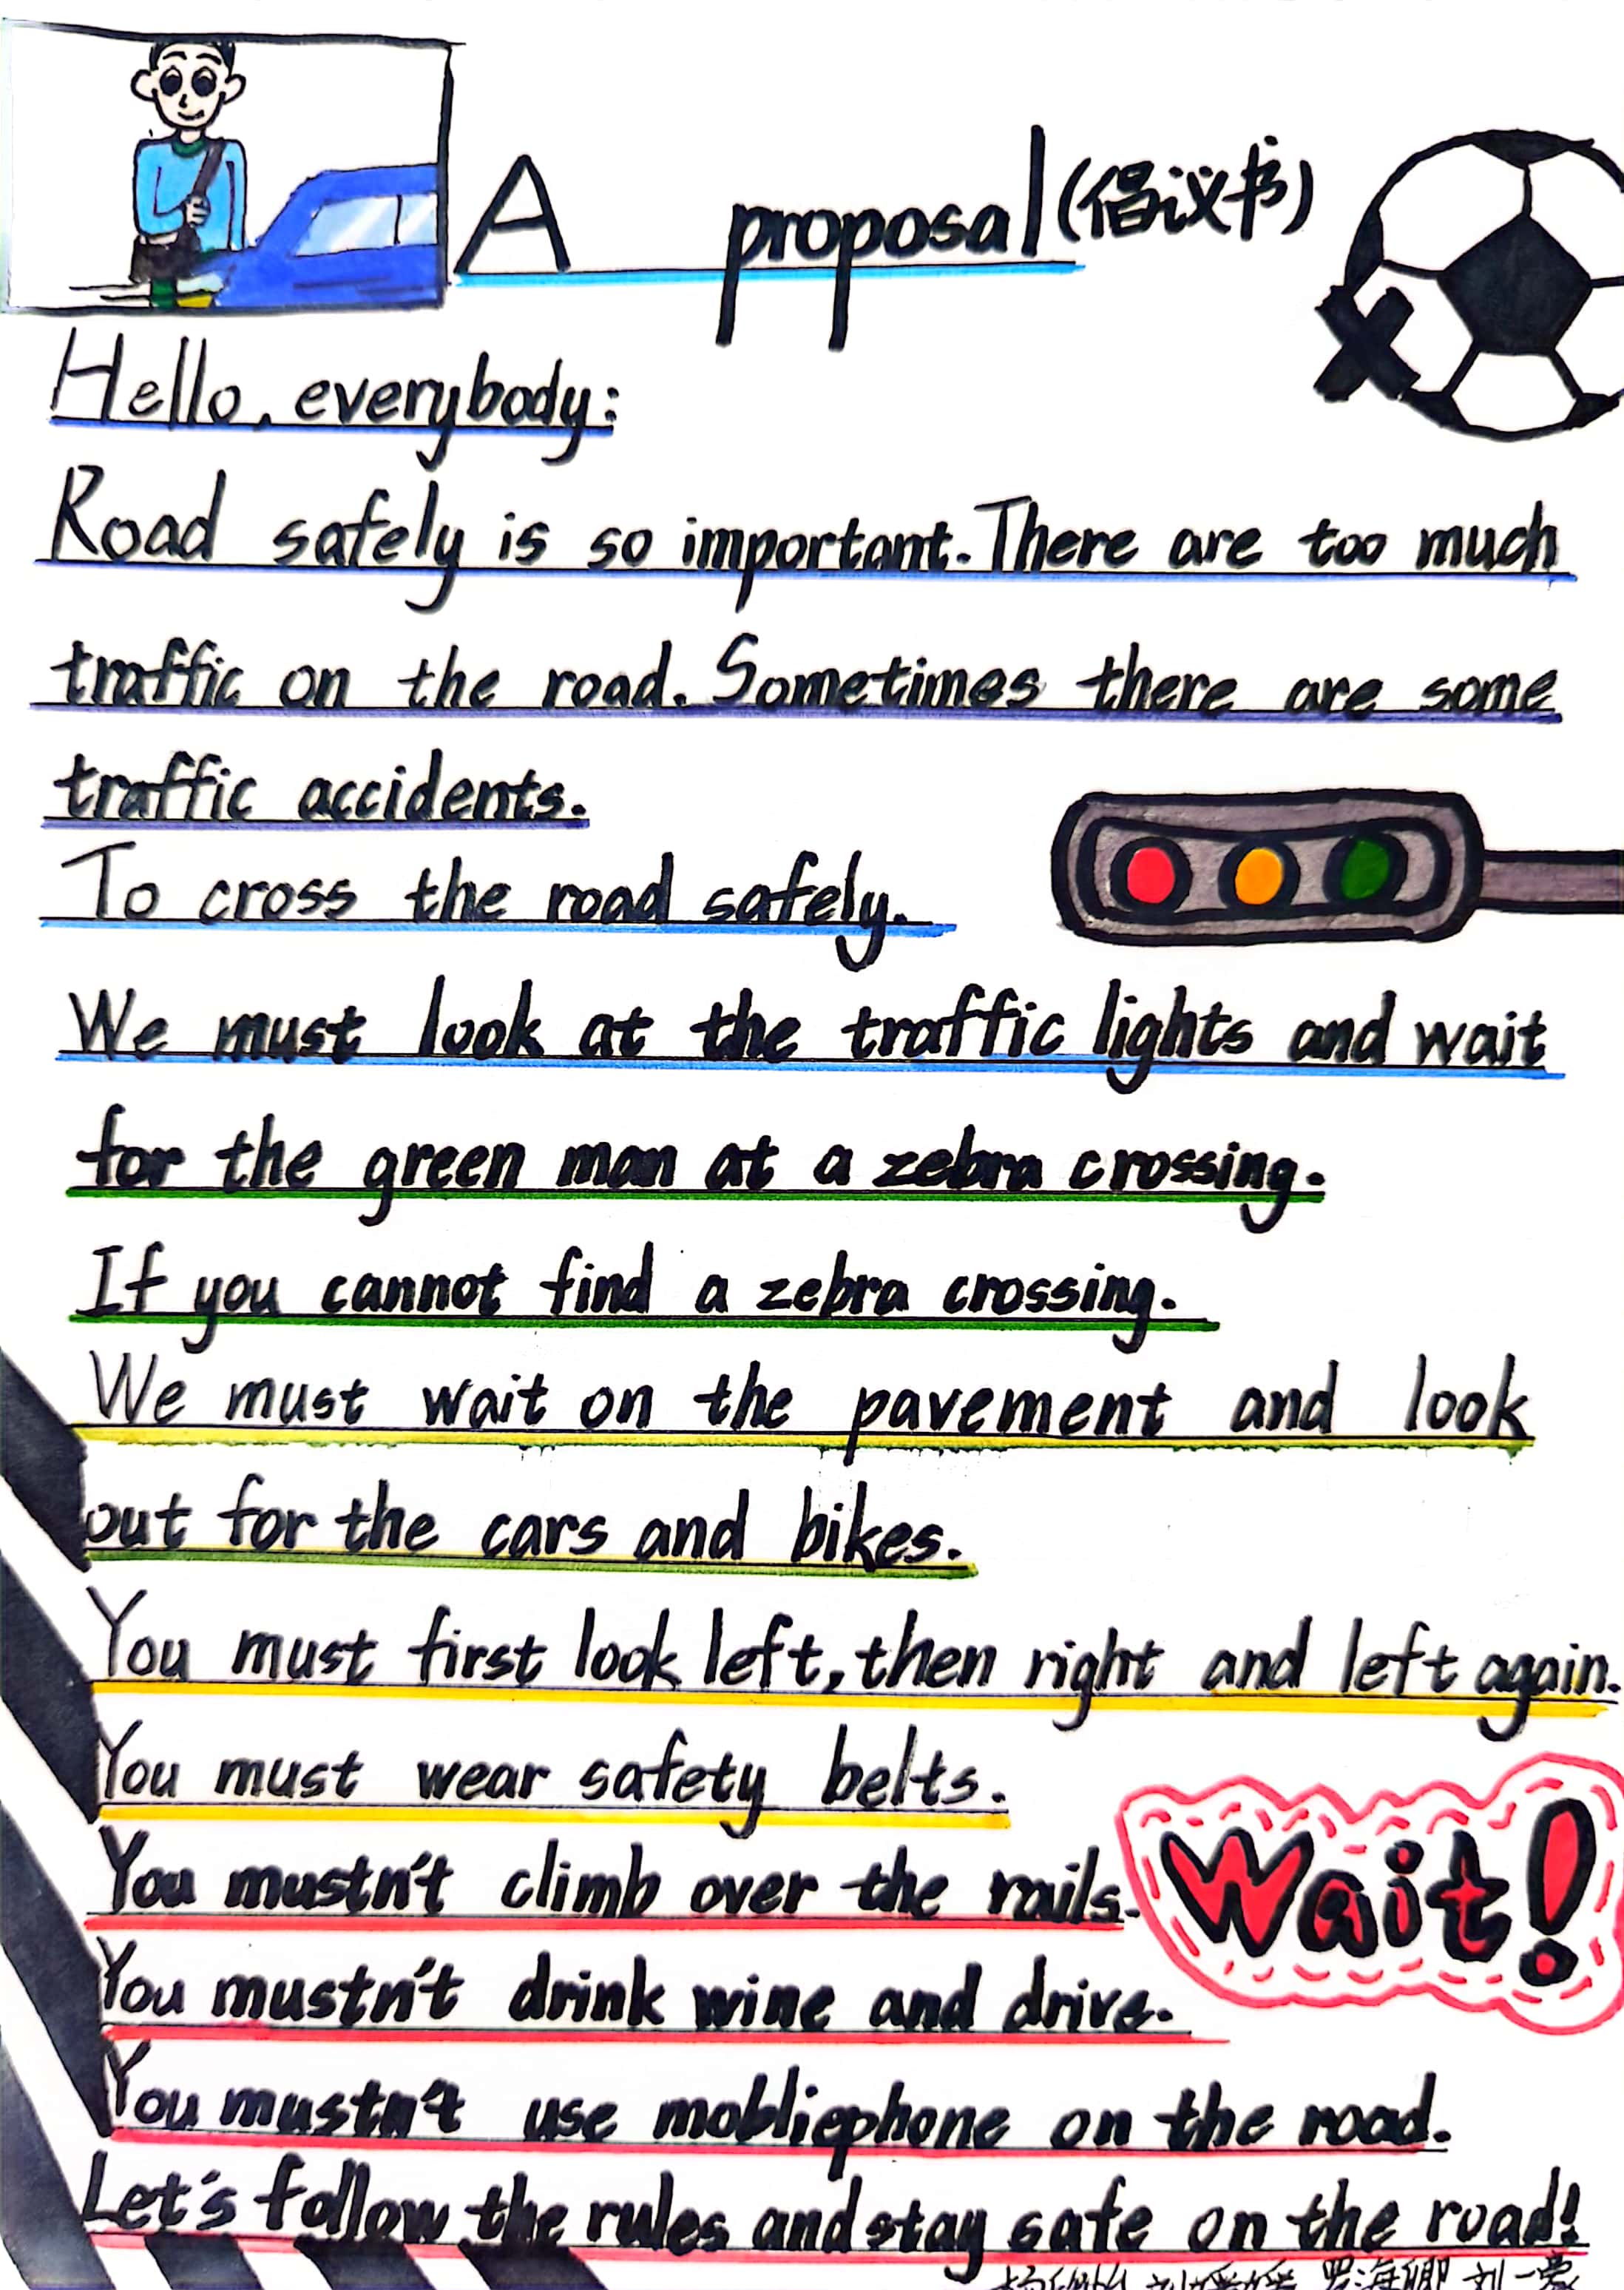 A proposal(倡议书)
Hello, everybody:
Road safely is so important. There are too much
traffic on the road. Sometimes there are some
traffic accidents.
To cross the road safely.
We must look at the traffic lights and wait
for the green man at a zebra crossing.
If you cannot find a zebra crossing.
We must wait on the pavement and look
out for the cars and bikes.
You must first look left, then right and left again.
You must wear safety belts.
You mustn't climb over the rails.
Wait!
You mustn't drink wine and drive.
You mustn't use mobliephone on the road.
Let's follow the rules and stay safe on the road!